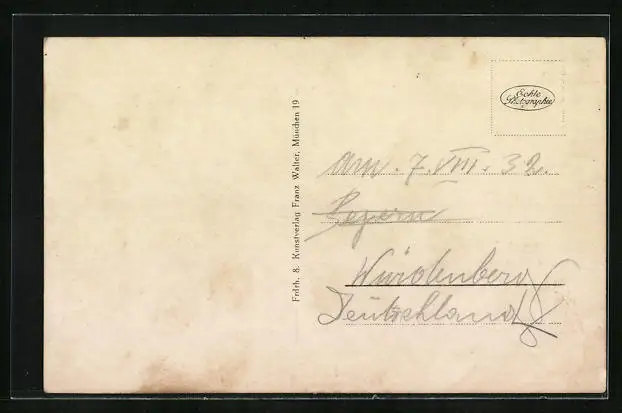 Echte
Photographie
Frdrh. 8 Kunstverlag Franz Walter, München 19
am. 7. VIII. 32.
Bayern
Würdenberg
Deutschland